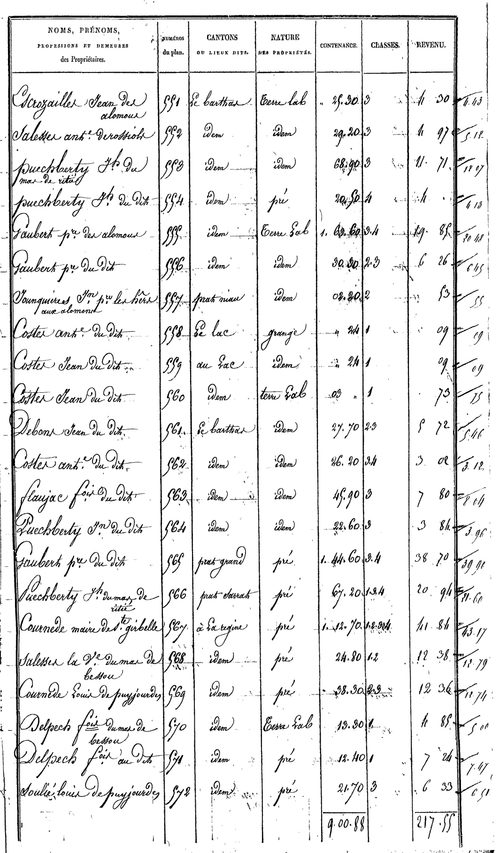 NOMS, PRÉNOMS, PROFESSIONS ET DEMEURES des Propriétaires. NUMÉROS du plan. CANTONS OU LIEUX DITS. NATURE DES PROPRIÉTÉS. CONTENANCE. CLASSES. REVENU.
Escrozailles Jean des alomous 551 Le barthas Terre lab 25.30 3 4 30
Salesses antᵉ desrossiols 552 idem idem 29.20 3 4 97
puechberty Jʰ du mas de 553 idem idem 68.90 3 11 71
puechberty Jʰ du dit 554 idem pré 20.50 4 4
Gaubert pʳᵉ des alomous 555 idem Terre Lab 1. 63.60 3.4 19 85
Gaubert pʳᵉ du dit 556 idem idem 30.30 2.3 6 26
Jounquieres Jⁿ pʳ les hérs aux alomous 557 prat niau idem 02.20 2 53
Costes antᵉ du dit 558 Le lac grange 24 1 09
Costes Jean du dit 559 au Lac idem 24 1 09
Costes Jean du dit 560 idem terre Lab 03 1 73
Debons Jean du dit 561 Le barthas idem 27.70 2.3 5 72
Costes antᵉ du dit 562 idem idem 26.20 3.4 3 02
flaujac foiˢ du dit 563 idem idem 45.90 3 7 80
Puechberty Jⁿ du dit 564 idem idem 22.60 3 3 84
Gaubert pʳᵉ du dit 565 prat grand pré 1. 44.60 3.4 38 70
Puechberty Jʰ du mas de 566 prat Sarrat pré 67.20 1.3.4 20 94
Cournede maire de Sᵗᵉ girbelle 567 à La regine pré 1. 12.70 1.2.3.4 41 84
Salesses la Vᵉ du mas de bessou 568 idem pré 24.80 1.2 12 38
Cournede Louis de puyjourdes 569 idem pré 38.30 2.3 12 36
Delpech foiˢ du mas de bessou 570 idem Terre Lab 13.30 1 4 85
Delpech foiˢ au dit 571 idem pré 12.40 1 7 24
soulié louis de puyjourdes 572 idem pré 21.70 3 6 33
9.00.88 217.55